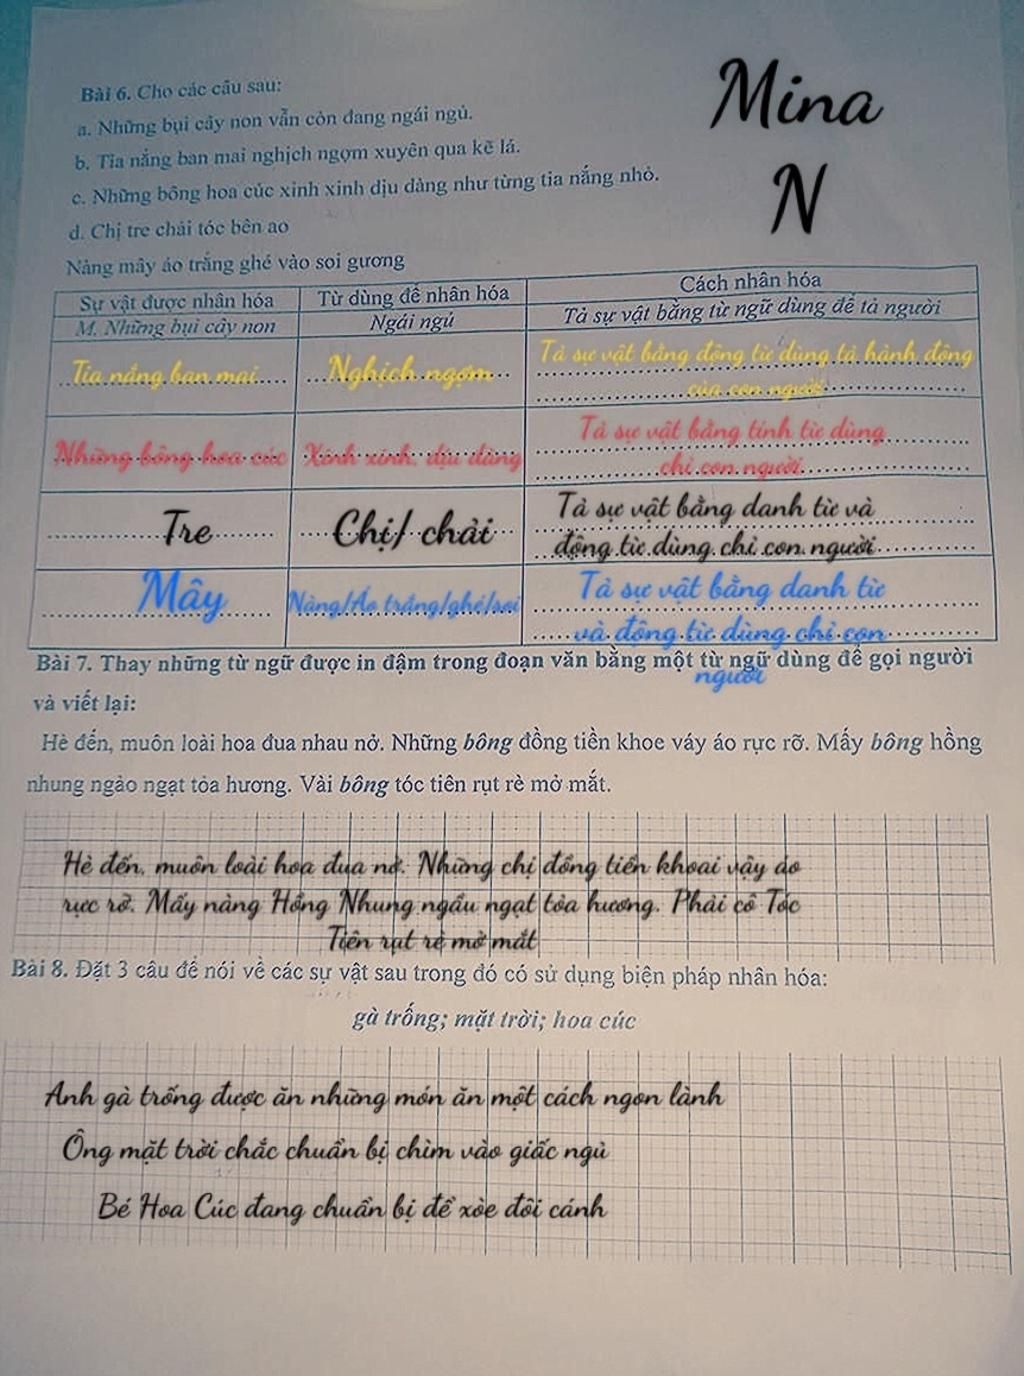 Bài 6. Cho các câu sau:
Mina
a. Những bụi cây non vẫn còn đang ngái ngủ.
b. Tia nắng ban mai nghịch ngợm xuyên qua kẽ lá.
N
c. Những bông hoa cúc xinh xinh dịu dàng như từng tia nắng nhỏ.
d. Chị tre chải tóc bên ao
Nàng mây áo trắng ghé vào soi gương
Sự vật được nhân hóa Từ dùng để nhân hóa Cách nhân hóa
M. Những bụi cây non Ngái ngủ Tả sự vật bằng từ ngữ dùng để tả người
Tia nắng ban mai Nghịch ngợm Tả sự vật bằng động từ dùng tả hành động
của con người
Những bông hoa cúc Xinh xinh, dịu dàng Tả sự vật bằng tính từ dùng
chỉ con người
Tre Chị/ chải Tả sự vật bằng danh từ và
động từ dùng chỉ con người
Mây Nàng/Áo trắng/ghé/soi Tả sự vật bằng danh từ
và động từ dùng chỉ con
người
Bài 7. Thay những từ ngữ được in đậm trong đoạn văn bằng một từ ngữ dùng để gọi người
và viết lại:
Hè đến, muôn loài hoa đua nhau nở. Những bông đồng tiền khoe váy áo rực rỡ. Mấy bông hồng
nhung ngào ngạt tỏa hương. Vài bông tóc tiên rụt rè mở mắt.
Hè đến, muôn loài hoa đua nở. Những chị đồng tiền khoai vậy áo
rực rỡ. Mấy nàng Hồng Nhung ngẩu ngạt tỏa hương. Phải cô Tóc
Tiên rụt rè mở mắt
Bài 8. Đặt 3 câu để nói về các sự vật sau trong đó có sử dụng biện pháp nhân hóa:
gà trống; mặt trời; hoa cúc
Anh gà trống được ăn những món ăn một cách ngon lành
Ông mặt trời chắc chuẩn bị chìm vào giấc ngủ
Bé Hoa Cúc đang chuẩn bị để xòe đôi cánh